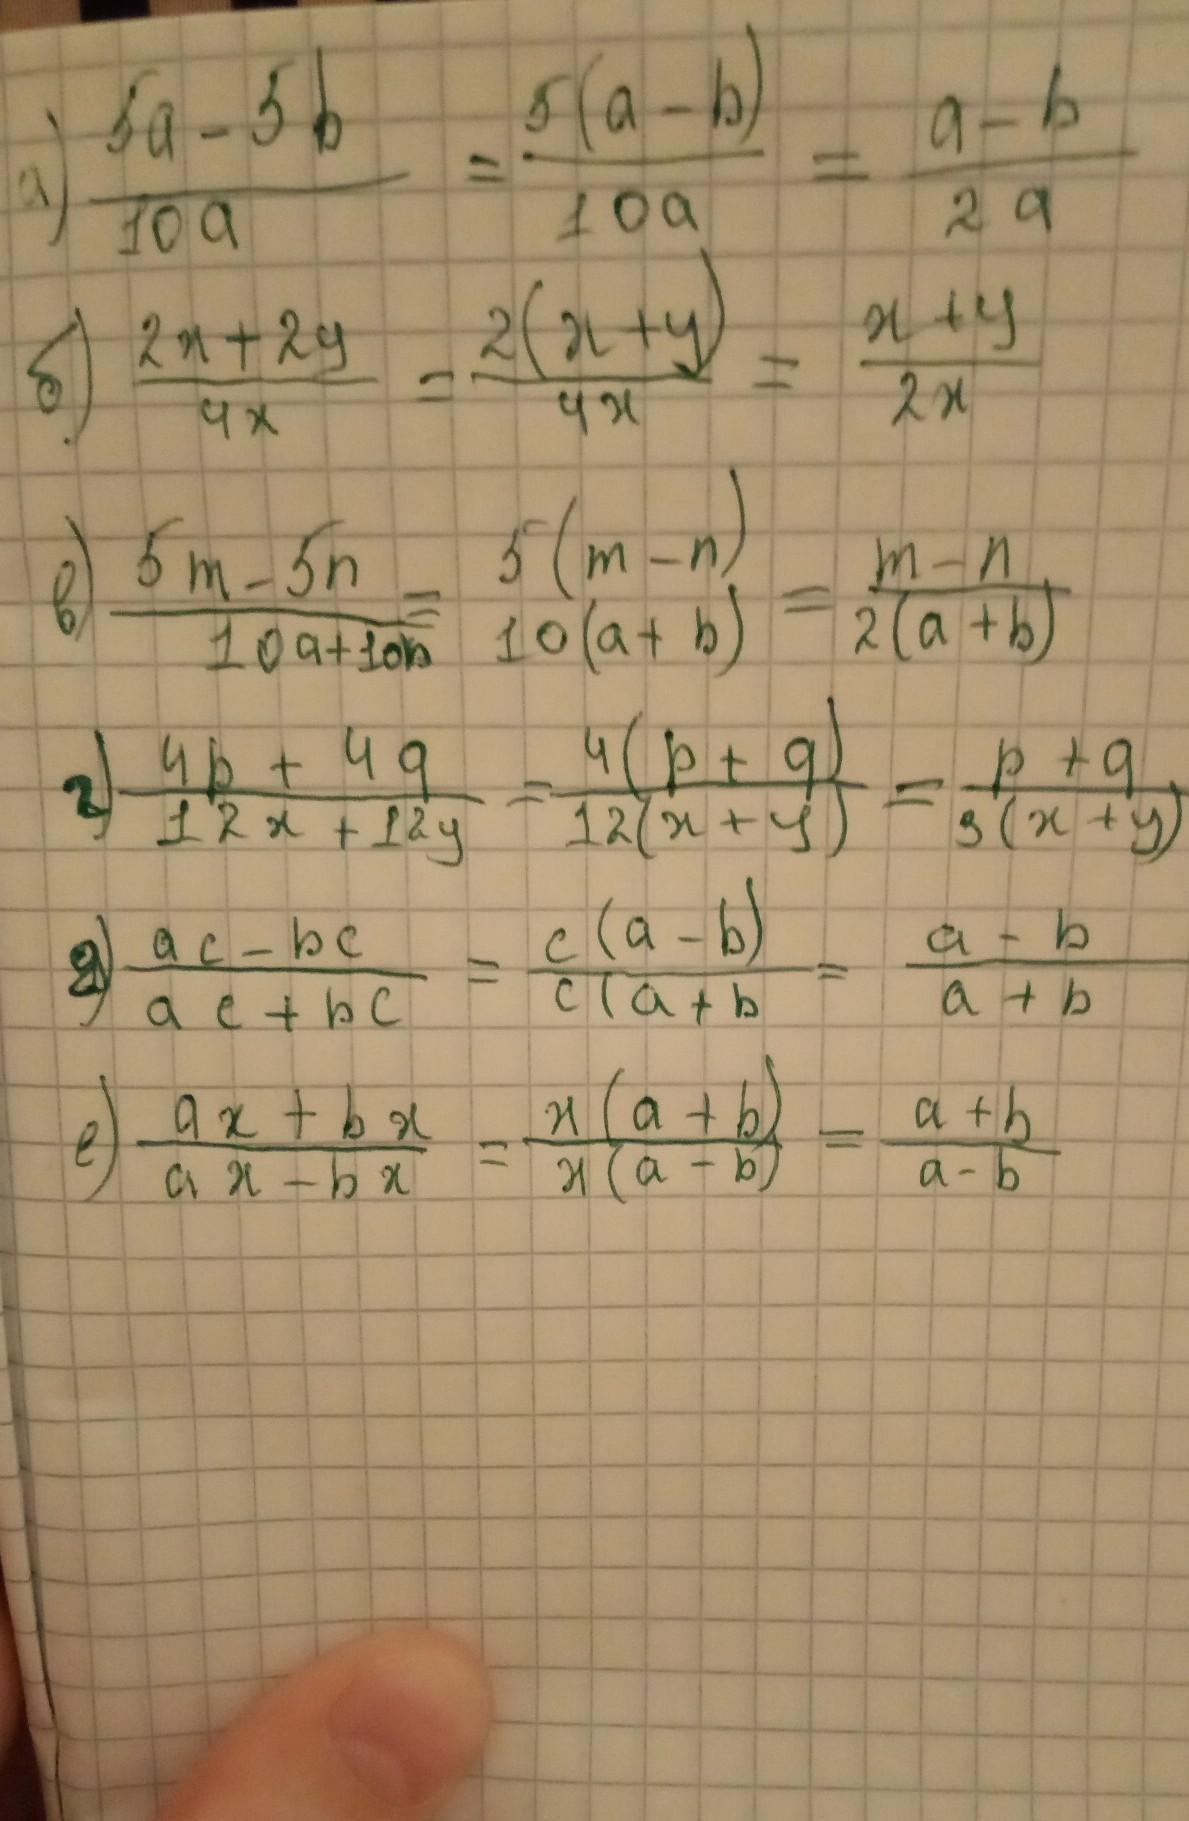 а) 5a - 5b / 10a = 5(a - b) / 10a = a - b / 2a
б) 2x + 2y / 4x = 2(x + y) / 4x = x + y / 2x
в) 5m - 5n / 10a + 10b = 5(m - n) / 10(a + b) = m - n / 2(a + b)
г) 4p + 4q / 12x + 12y = 4(p + q) / 12(x + y) = p + q / 3(x + y)
д) ac - bc / ac + bc = c(a - b) / c(a + b = a - b / a + b
е) ax + bx / ax - bx = x(a + b) / x(a - b) = a + b / a - b